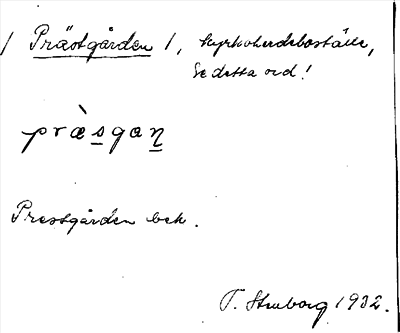 / Prästgården /, kyrkoherdeboställe,
se detta ord!
præ̀sgaṉ
Prestgården bek.
T. Struborg 1932.